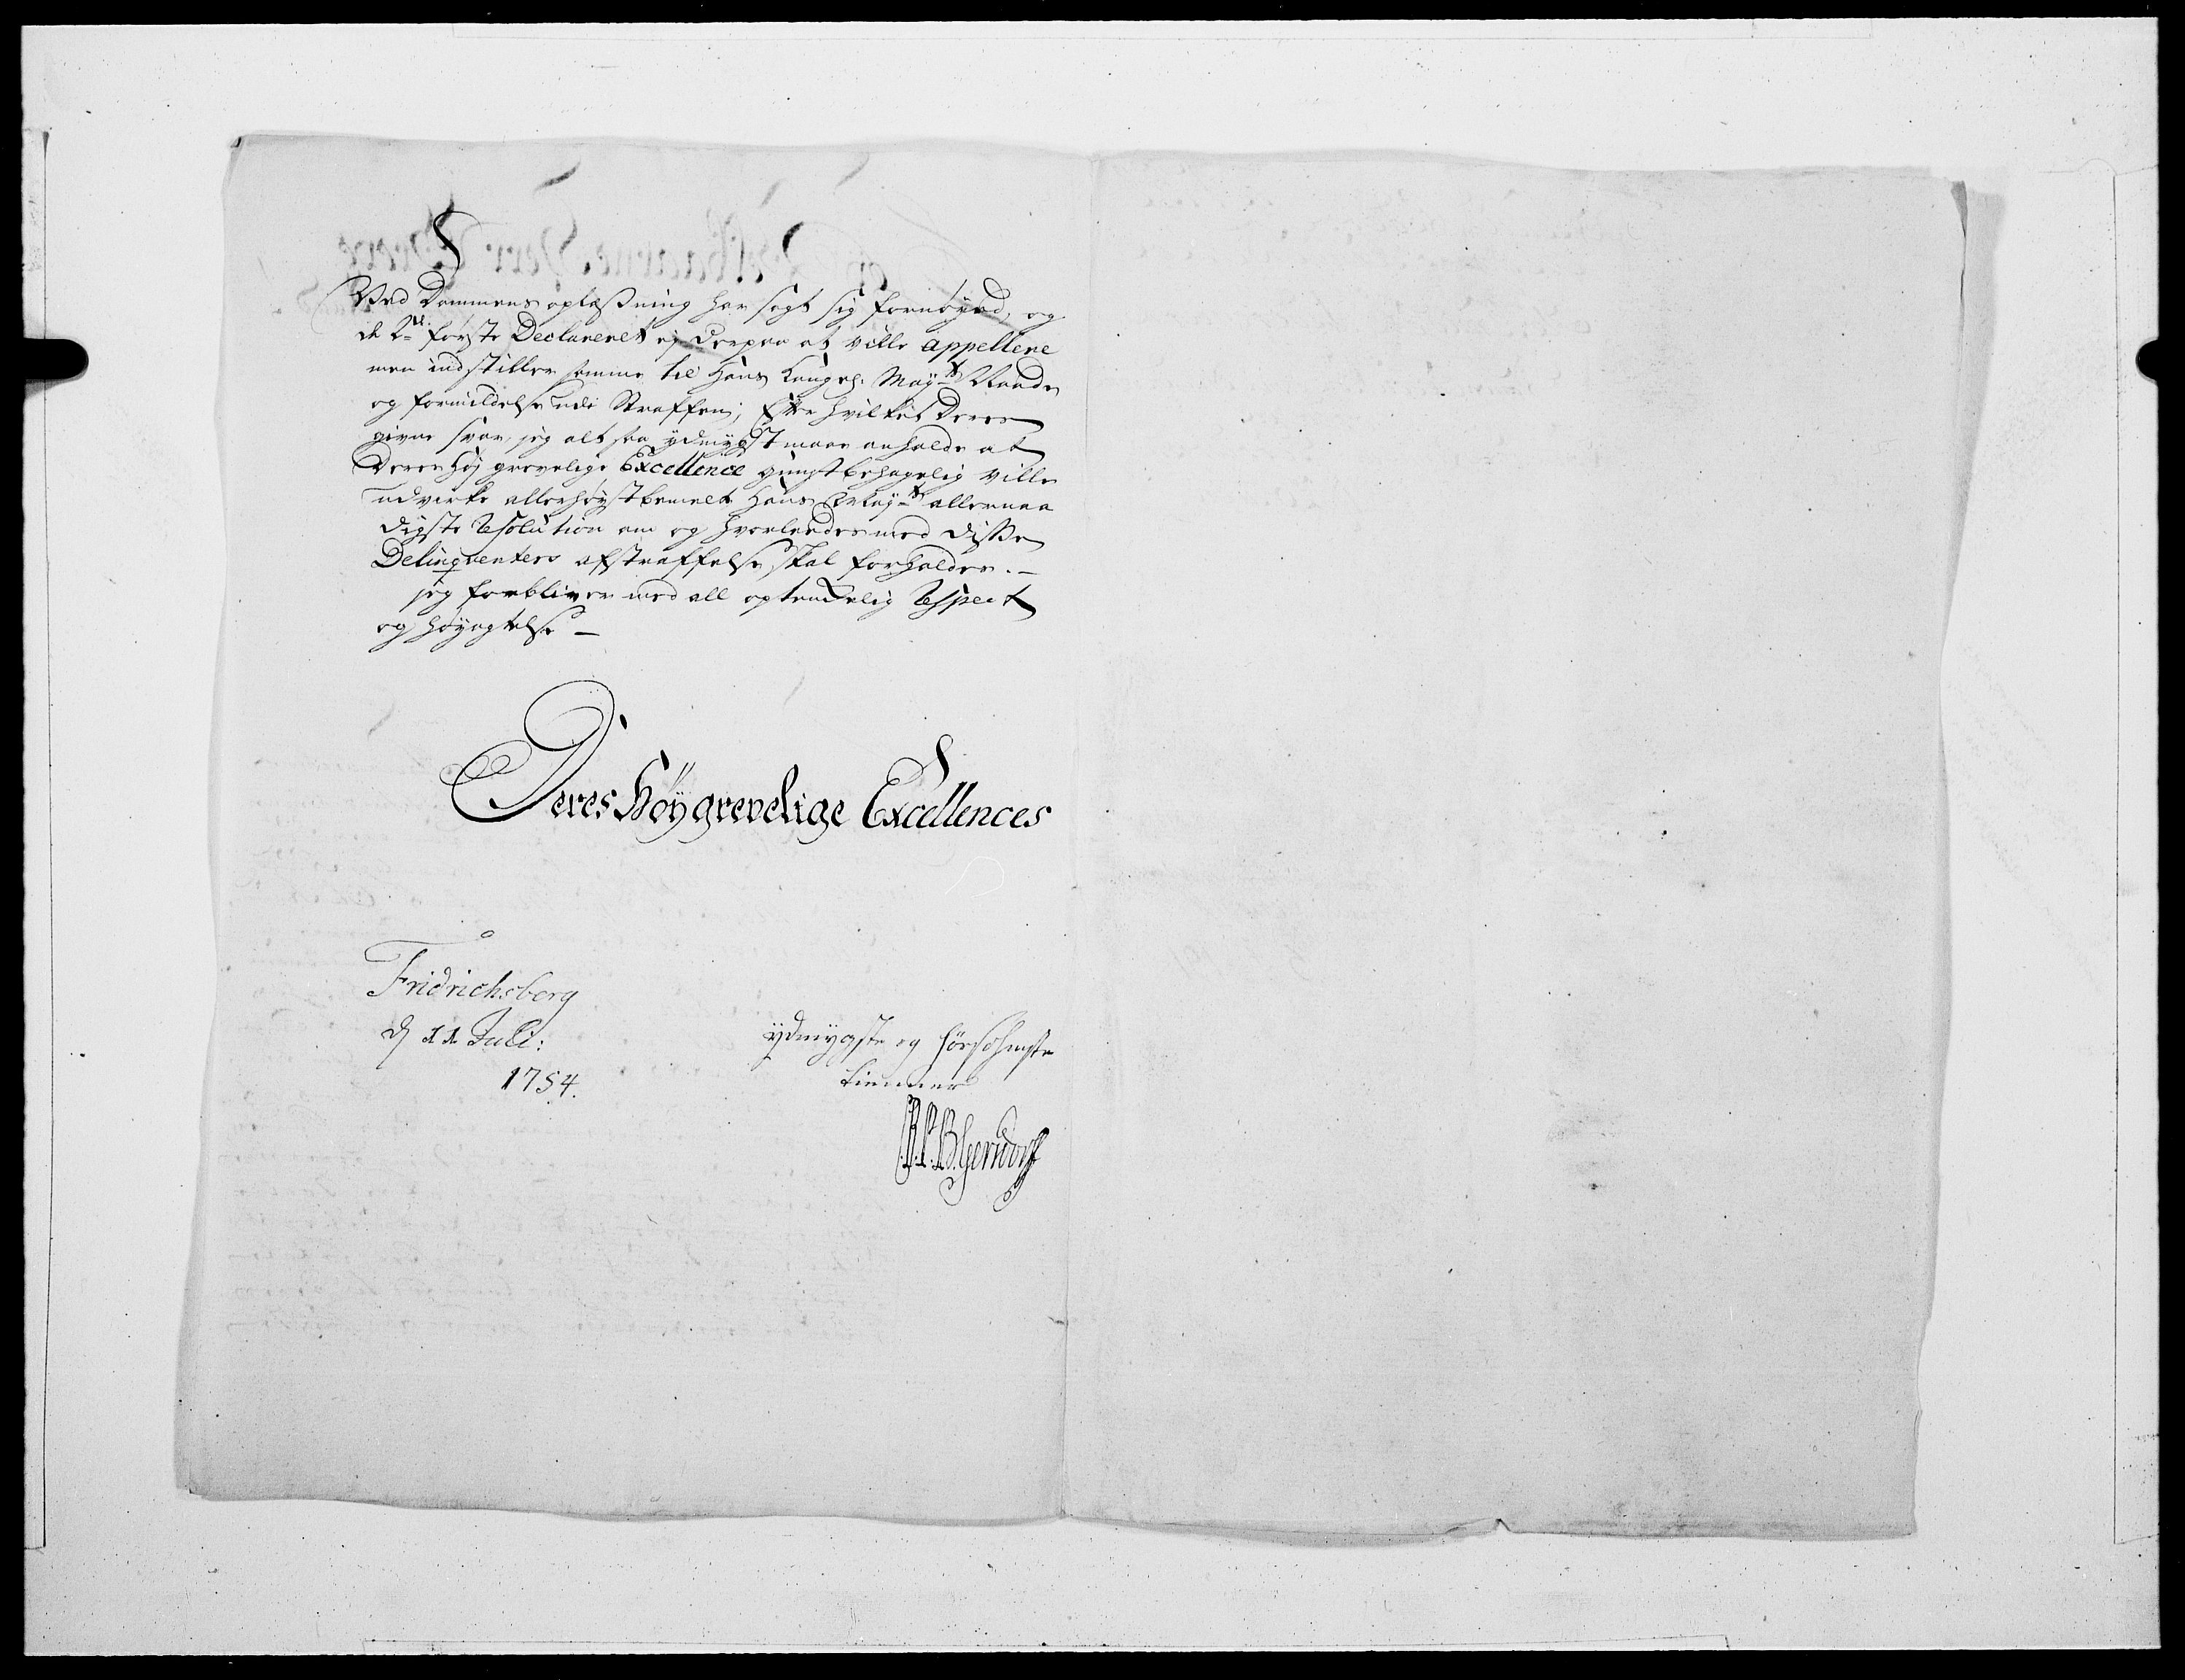 Ved Dommens oplæsning har sagt sig fornøyed, og
de 2de første Declareret ej derpaa at ville appellere
men indstiller samme til Hans Kongel. Mayts Naade
og formildelse udi Straffen; Efter hvilket Deres
givne svar, jeg alt saa ydmygst maae anholde at
Deres Høj grevelige Excellence gunstbehagelig ville
udvirke allerhøystbemelte Hans Mayts allernaa
digste Resolution om og hvorledes med disse
Delinqventers afstraffelse skal forholdes. –
jeg forbliver med all optænkelig Respect
og høyagtelse –
Deres Höygrevelige Excellences
Fridrichsberg
d 11 Juli:
1754.
ydmygste og hörsomste
tienner
Gersdorff